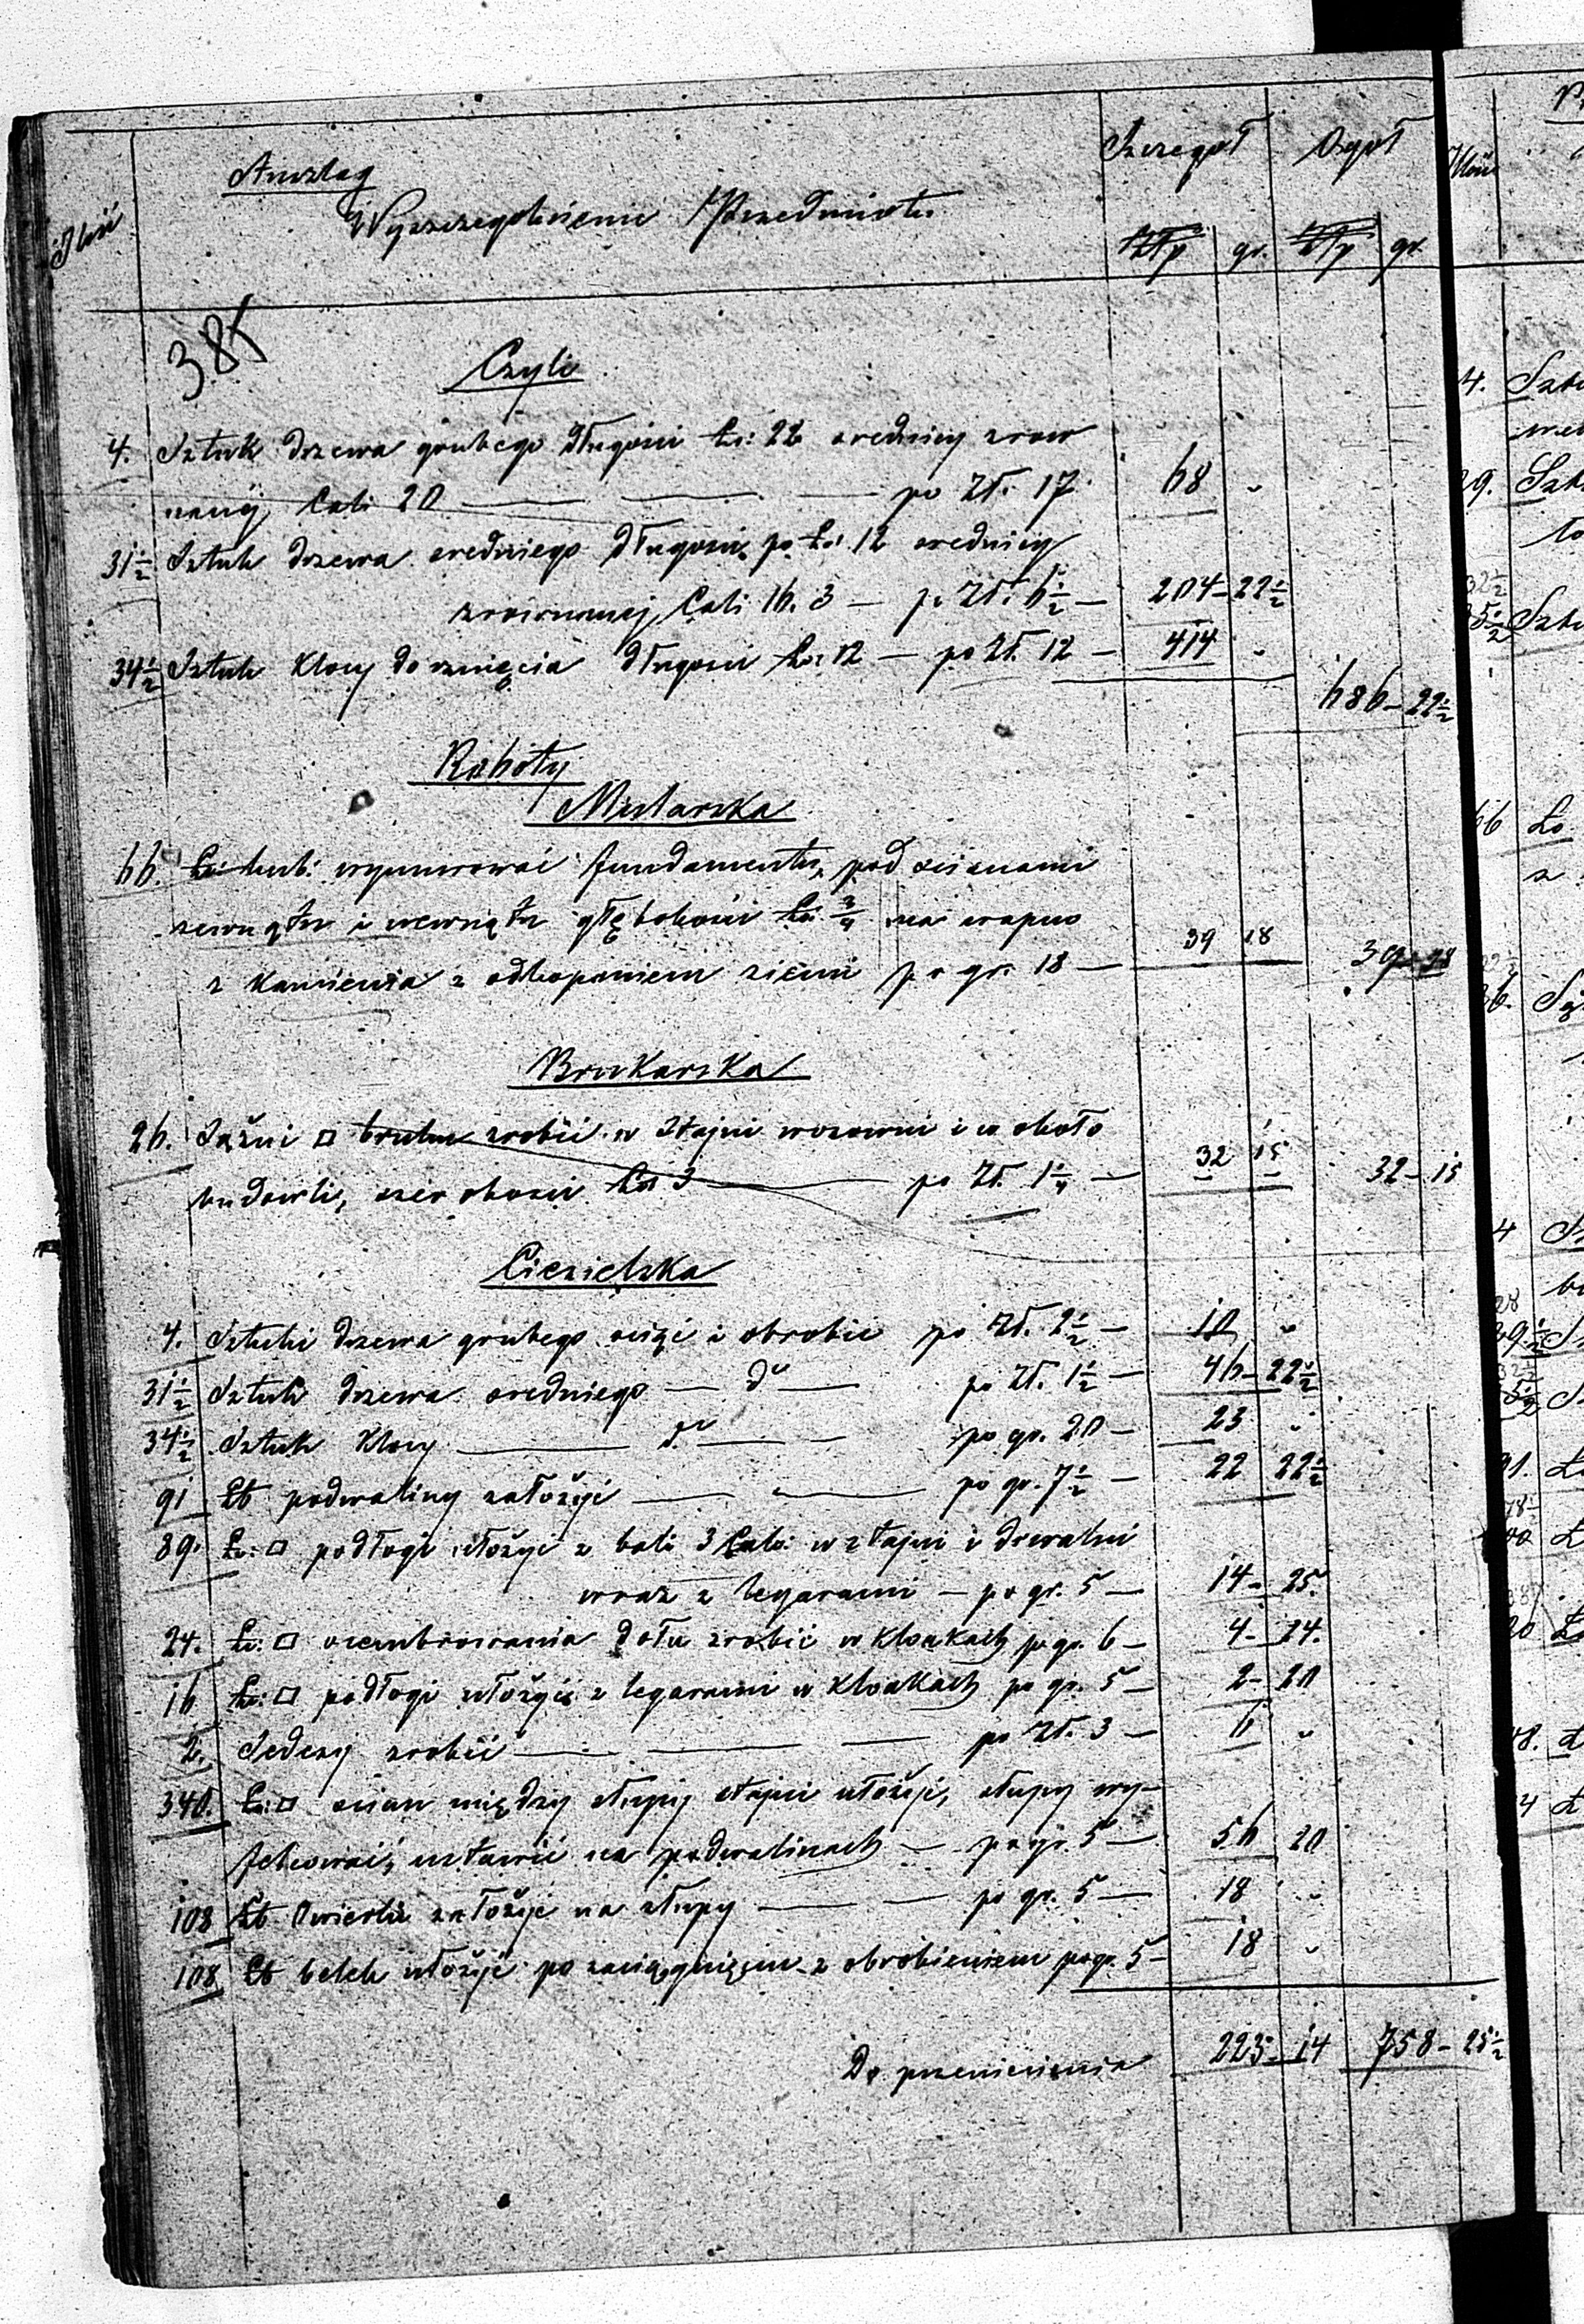 Anszlag
Szczegół Ogół
Ilość Wyszczególnienie Przedmiotu
Złp gr. Złp gr.
Czyli
4. Sztuk drzewa grubego długości Ło: 22 srednicy zrow
naney Cali 20 — — — po Zł. 17. 68 „
31 1/2 Sztuk drzewa sredniego długości po Ło: 12 srednicy
zrownaney Cali 16. 3 — po Zł. 6 1/2 — 204 — 22 1/2
34 1/2 Sztuk Klocy do rznięcia długości Ło: 12 — po Zł. 12 — 414 „
686 — 22 1/2
Roboty
Mularska
66. Ło: kub: wymurować fundamentu, pod scianami
zewnątz i wewnątz głębokości Ło. 3/4 na wapno
z Kamienia z odkopaniem ziemi po gr. 18 — 39 18 39 — 18
Brukarska
26. Sążni □ bruku zrobić w Stajni wozowni i w około
budowli, szerokosci Łoi 3 — po Zł. 1 1/4 — 32 15 32 — 15
Ciesielska
4. Sztuki drzewa grubego sciąć i obrobić po Zł. 2 1/2 — 10 „
31 1/2 Sztuk drzewa sredniego — do — po Zł. 1 1/2 — 46 — 22 1/2
34 1/2 Sztuk Klocy — do — po gr. 20 — 23 „
91 Łb podwaliny założyć — — po gr. 7 1/2 — 22 22 1/2
89. Ło: □ podłogi ułożyć z bali 3 Cali: w stajni i drewalni
wraz z legarami — po gr. 5 — 14 — 25.
24. Ło: □ ocembrowania dołu zrobić w Kloakach po gr. 6 — 4 — 24.
16 Ło: □ podłogi ułożyć z legarami w Kloakach po gr. 5 — 2 — 20
2. Sedesy zrobić — — — po Zł. 3 — 6 „
340. Ło: □ scian między słupy stajni ułożyć, słupy wy-
felcować, ustawić na podwalinach — po gr. 5 — 56 20
108 Łb. Oczepu założyć na słupy — — po gr. 5 — 18 „
108 Łb belek ułożyć po zaciągnięciu z obrobieniem po gr. 5 — 18 „
Do przeniesienia 223 — 14 758 — 25 1/2